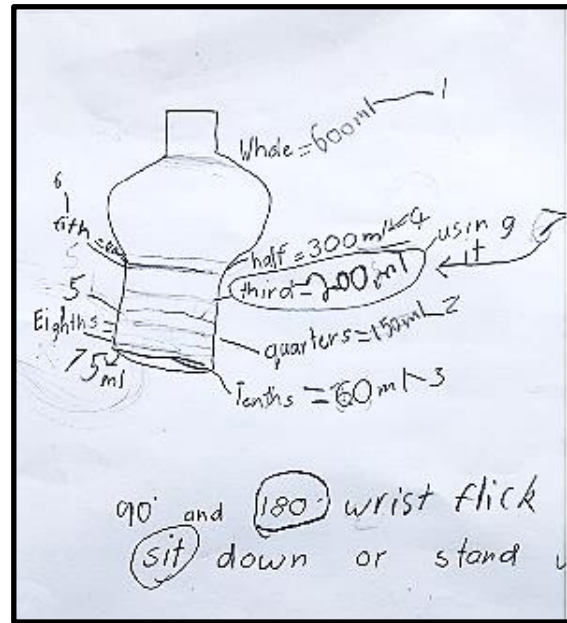 Whole = 600ml 1
6
fith =
half = 300ml 4
using
it
third = 200ml
5
Eighths =
75ml
quarters = 150ml 2
Tenths = 60ml 3
90° and 180° wrist flick
sit down or stand